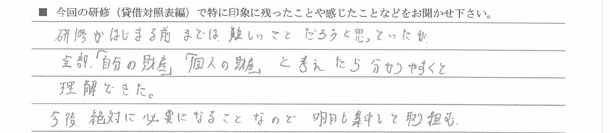 ■ 今回の研修（貸借対照表編）で特に印象に残ったことや感じたことなどをお聞かせ下さい。
研修がはじまる前までは難しいことだろうと思っていたが
全部、「自分の財産」「個人の財産」と考えたら分かりやすくと
理解できた。
今後、絶対に必要になることなので明日も集中して取り組む。